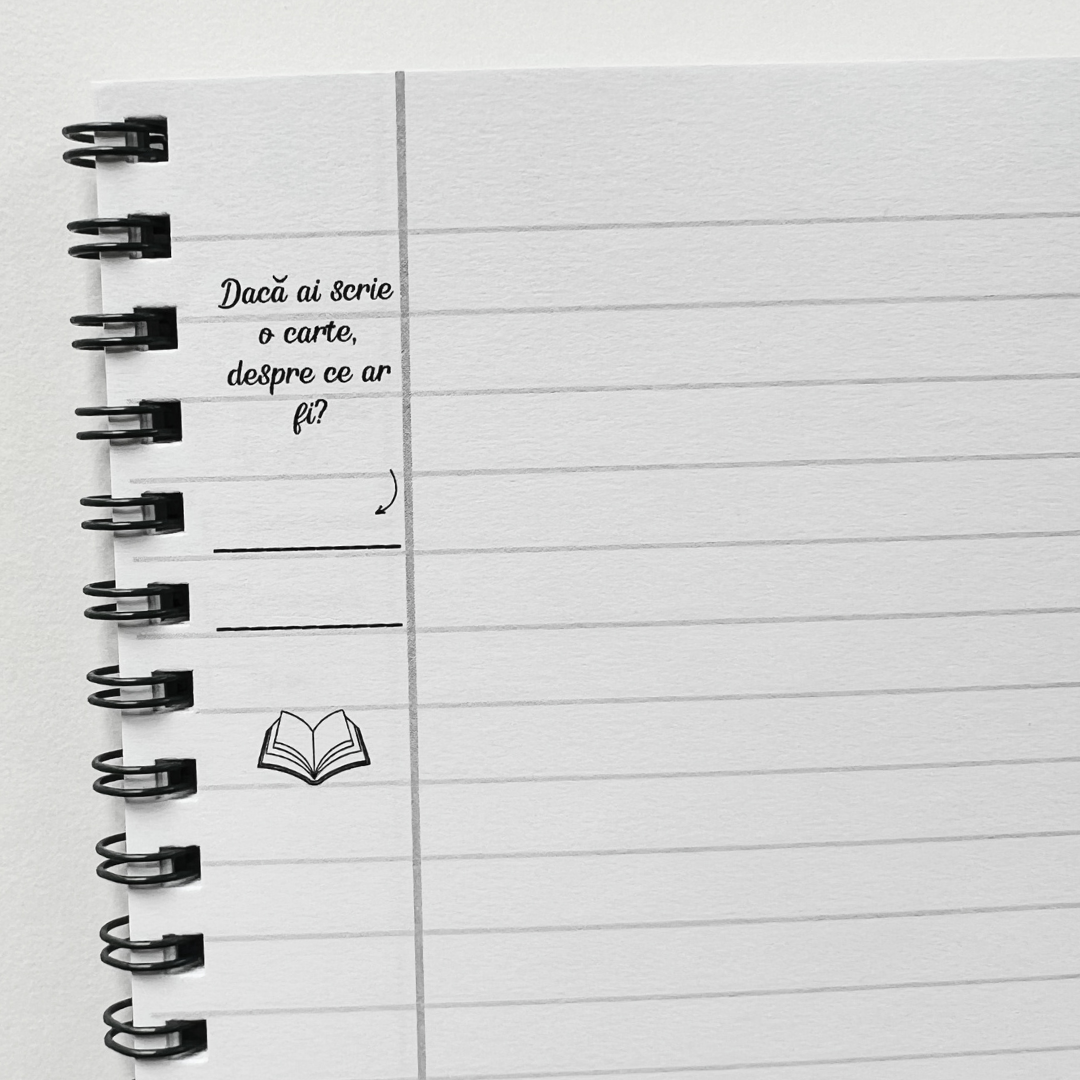 Dacă ai scrie
o carte,
despre ce ar
fi?